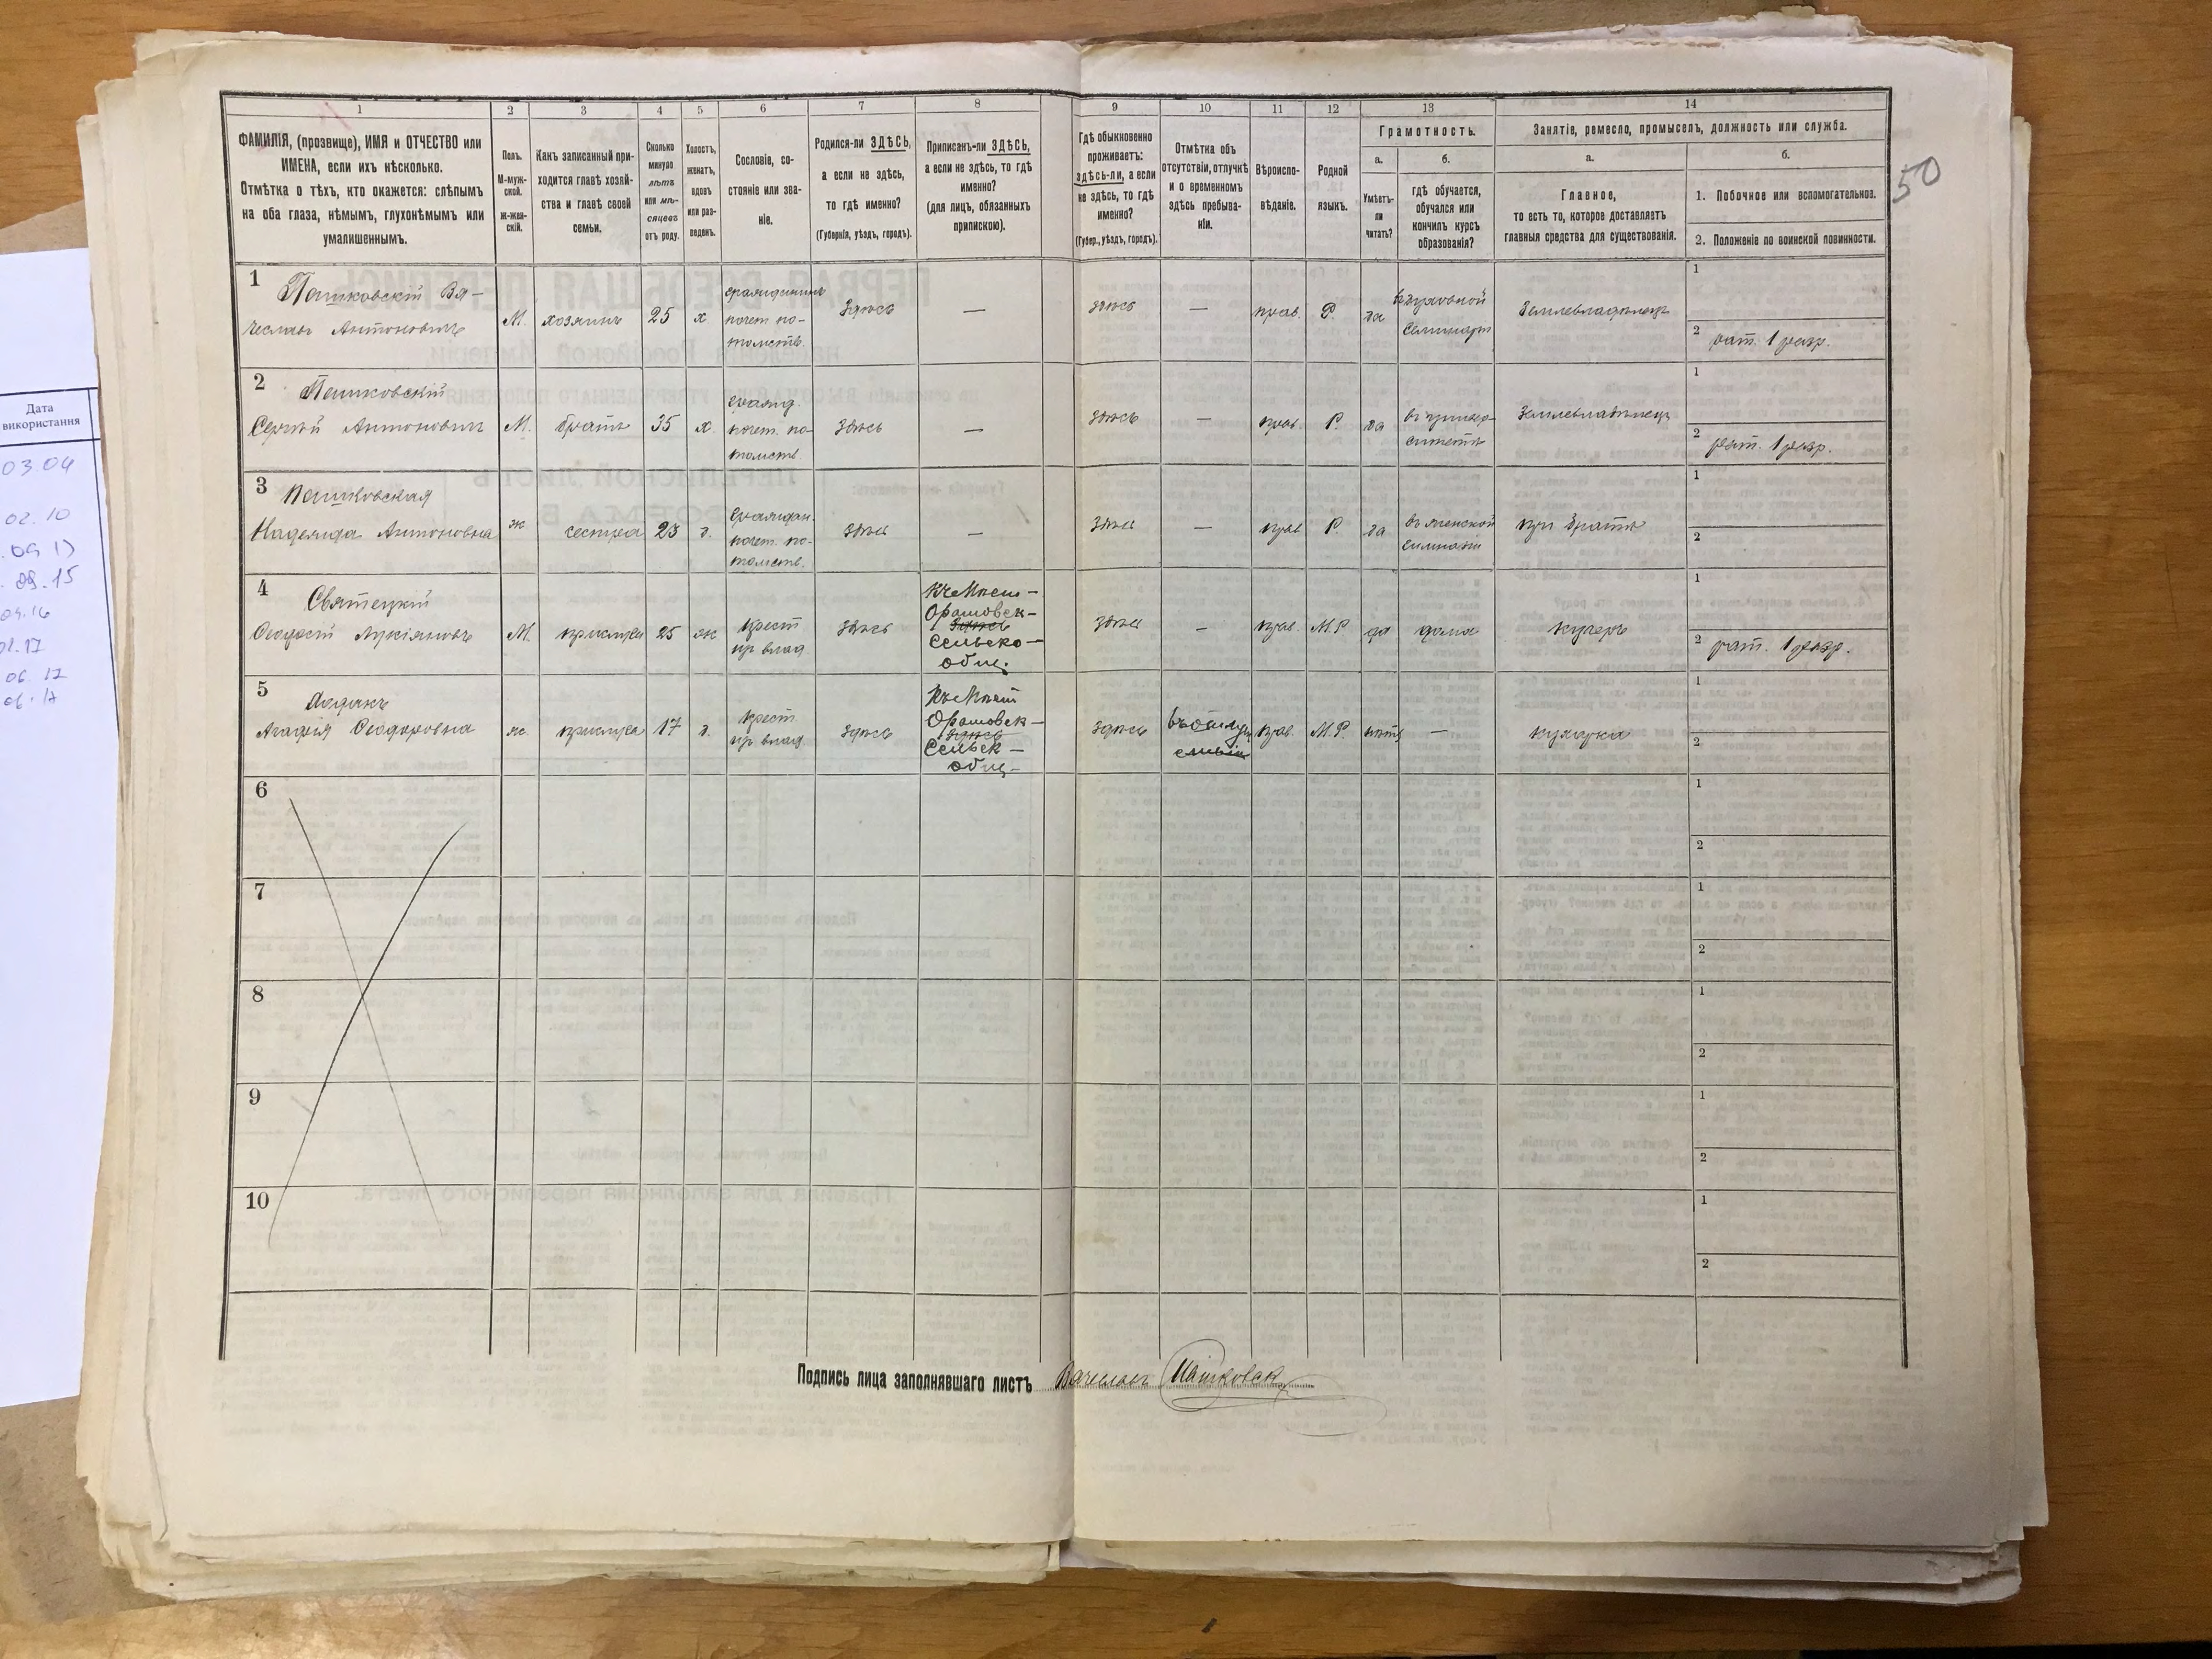 Дата
використання
03.04
02.10
1 2 3 4 5 6 7 8 9 10 11 12 13 14
ФАМИЛІЯ, (прозвище), ИМЯ и ОТЧЕСТВО или
ИМЕНА, если ихъ нѣсколько.
Отмѣтка о тѣхъ, кто окажется: слѣпымъ
на оба глаза, нѣмымъ, глухонѣмымъ или
умалишеннымъ.
Полъ.
М-муж-
ской.
ж-жен-
скій.
Какъ записанный при-
ходится главѣ хозяй-
ства и главѣ своей
семьи.
Сколько
минуло
лѣтъ
или мѣ-
сяцевъ
отъ роду.
Холостъ,
женатъ,
вдовъ
или раз-
веденъ.
Сословіе, со-
стояніе или зва-
ніе.
Родился-ли ЗДѢСЬ,
а если не здѣсь,
то гдѣ именно?
(Губернія, уѣздъ, городъ).
Приписанъ-ли ЗДѢСЬ,
а если не здѣсь, то гдѣ
именно?
(для лицъ, обязанныхъ
припискою).
Гдѣ обыкновенно
проживаетъ:
здѣсь-ли, а если
не здѣсь, то гдѣ
именно?
(Губер., уѣздъ, городъ).
Отмѣтка объ
отсутствіи, отлучкѣ
и о временномъ
здѣсь пребыва-
ніи.
Вѣроиспо-
вѣданіе.
Родной
языкъ.
Грамотность.
а.
Умѣетъ-
ли
читать?
б.
гдѣ обучается,
обучался или
кончилъ курсъ
образованія?
Занятіе, ремесло, промыселъ, должность или служба.
а.
Главное,
то есть то, которое доставляетъ
главныя средства для существованія.
б.
1. Побочное или вспомогательное.
2. Положеніе по воинской повинности.
50
1 Пашковскій Вя-
чеславъ Антоновичъ
М. хозяинъ 25 х
гражданинъ
почет. по-
томств.
Здѣсь — здѣсь — прав. Р. да
въ духовной
семинар
Землевладѣлецъ
1
2 рат. 1 разр.
2 Пашковскій
Сергѣй Антоновичъ
М. братъ 35 х.
гражд.
почет. по-
томств.
здѣсь — здѣсь — прав. Р. да
въ универ-
ситетѣ
Землевладѣлецъ
1
2 рат. 1 разр.
3 Пашковская
Надежда Антоновна
ж сестра 23 д.
граждан.
почет. по-
томств.
здѣсь — здѣсь — прав Р. да
въ женской
гимназіи
при братѣ
1
2
4 Святецкій
Ѳеодосій Лукіяновъ
М. прислуга 25 ж
крест
пр влад.
здѣсь
Оратовск-
здѣсь
Сельско-
общ.
здѣсь — прав. М.Р да дома кучеръ
1
2 рат. 1 разр.
5
Агафія Ѳеодоровна
ж. прислуга 17 д.
крест.
пр влад
здѣсь
Оратовск-
здѣсь
Сельск-
общ-
здѣсь
прав. М.Р нѣтъ — кухарка
1
2
6 1
2
7 1
2
8 1
2
9 1
2
10 1
2
Подпись лица заполнявшаго листъ Вячеславъ Пашковск